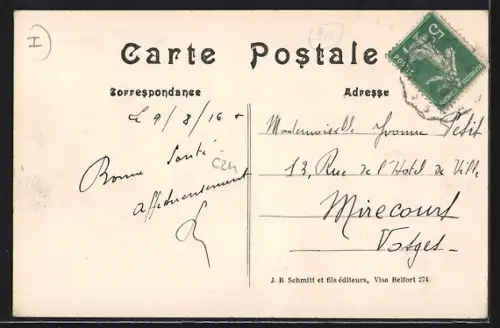 I
Carte Postale
Correspondance
Adresse
5c
POSTES
Le 9/8/16
Bonne Santé
affectueusement
C24
Mademoiselle Yvonne Petit
13, Rue de l'Hotel de Ville
Mirecourt
Vosges
J. B. Schmitt et fils éditeurs, Visa Belfort 274